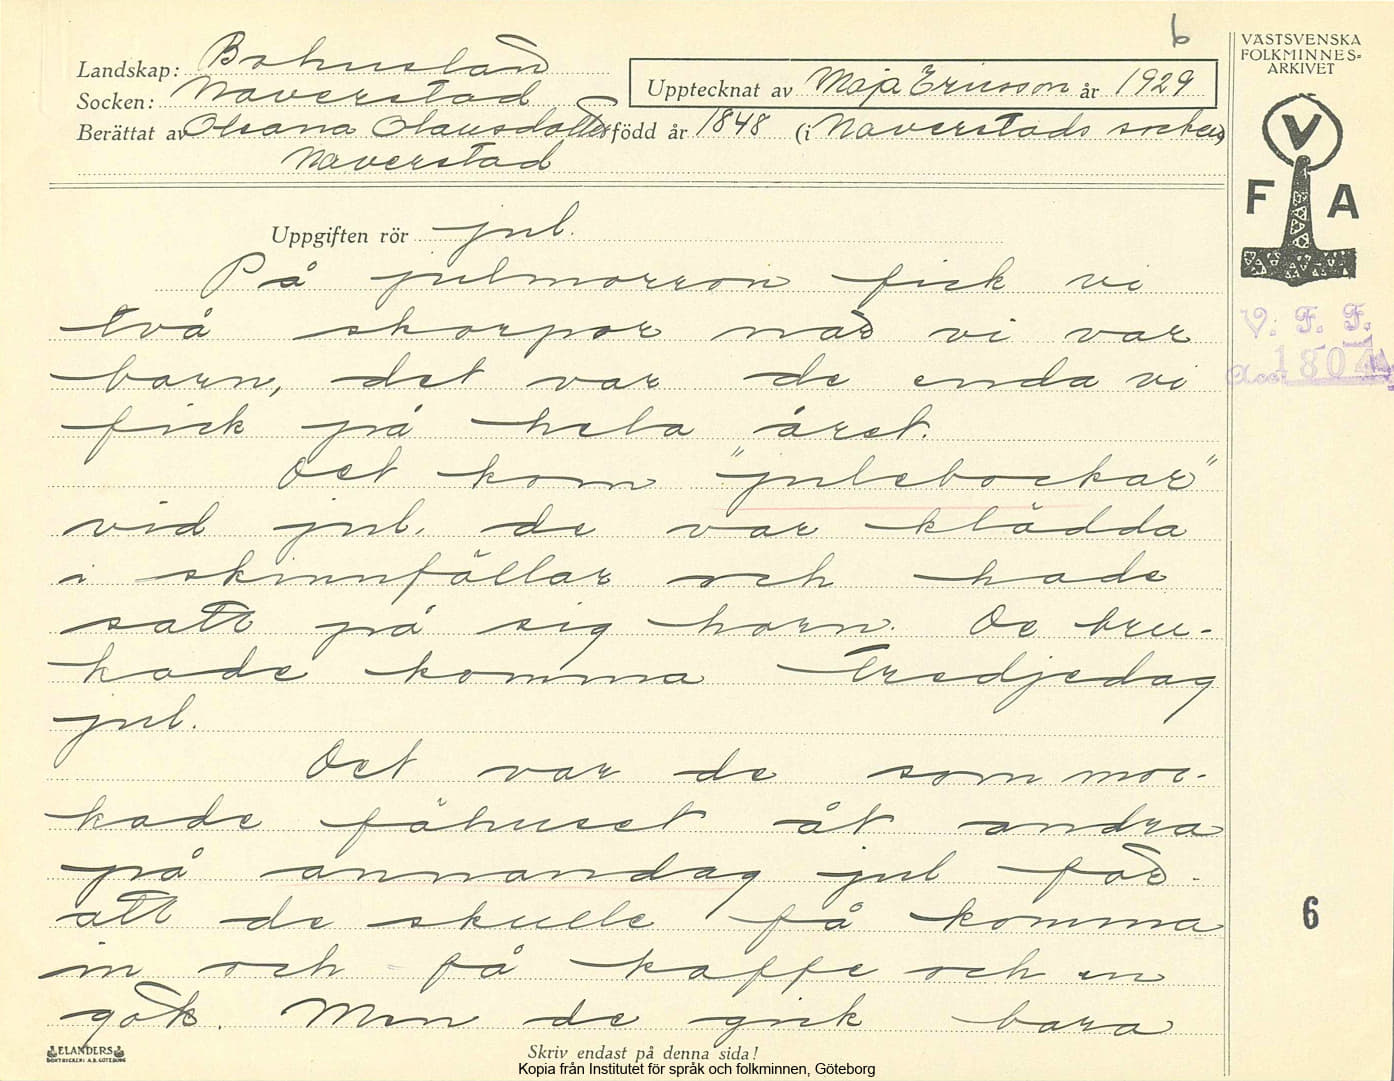 6
Landskap: Bohuslän
Socken: Naverstad
Upptecknat av Maja Ericsson år 1929
Berättat av Oleana Olausdotter född år 1848 (i Naverstads socken)
Naverstad
VÄSTSVENSKA
FOLKMINNES=
ARKIVET
V
F A
V. F. F.
Acc. 1804
Uppgiften rör jul.
På julmorron fick vi
två skorpor när vi var
barn, det var de enda vi
fick på hela året.
Det kom "julebockar"
vid jul. de var klädda
i skinnfällar och hade
satt på sig horn. De bru-
kade komma tredjedag
jul.
Det var de som moc-
kade fähuset åt andra
på annandag jul för
att de skulle få komma
in och få kaffe och en
gök. Men de gick bara
6
ELANDERS
BOKTRYCKERI A.B. GÖTEBORG
Skriv endast på denna sida!
Kopia från Institutet för språk och folkminnen, Göteborg